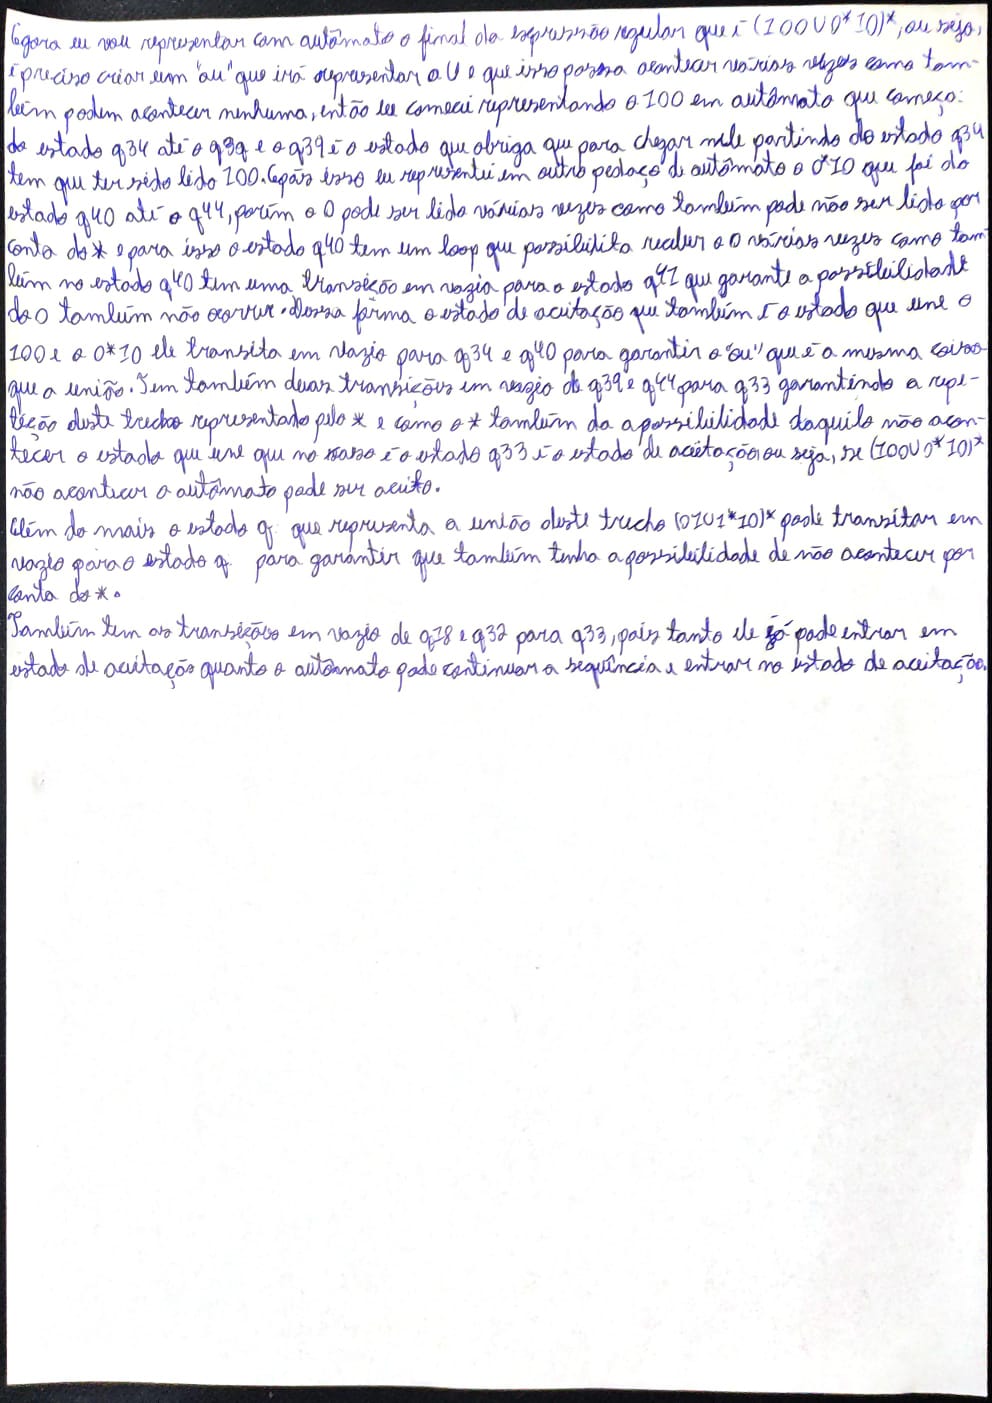 Agora eu vou representar com autômato o final da expressão regular que é (100U0*10)*, ou seja,
é preciso criar um "ou" que irá representar o U e que isso possa acontecer várias vezes como tam-
bém podem acontecer nenhuma, então eu comecei representando o 100 em autômato que começo:
do estado q34 até o q39 e o q39 é o estado que obriga que para chegar nele partindo do estado q34
tem que ter sido lido 100. Após isso eu representei em outro pedaço de autômato o 0*10 que foi do
estado q40 até o q44, porém o 0 pode ser lido várias vezes como também pode não ser lido por
conta do * e para isso o estado q40 tem um loop que possibilita receber o 0 várias vezes como tam
bém no estado q40 tem uma transição em vazia para o estado q41 que garante a possibilidade
do 0 também não ocorrer. Dessa forma o estado de aceitação que também é o estado que une o
100 e o 0*10 ele transita em vazio para q34 e q40 para garantir o "ou" que é a mesma coisa
que a união. Tem também duas transições em vazio de q39 e q44 para q33 garantindo a repe-
tição deste trecho representado pelo * e como o * também da a possibilidade daquilo não acon-
tecer o estado que une que no caso é o estado q33 é o estado de aceitação ou seja, se (100U0*10)*
não acontecer o autômato pode ser aceito.
Além do mais o estado q que representa a união deste trecho (01U1*10)* pode transitar em
vazio para o estado q para garantir que também tenha a possibilidade de não acontecer por
conta do *.
Também tem as transições em vazio de q28 e q32 para q33, pois tanto ele só pode entrar em
estado de aceitação quanto o autômato pode continuar a sequência e entrar no estado de aceitação.